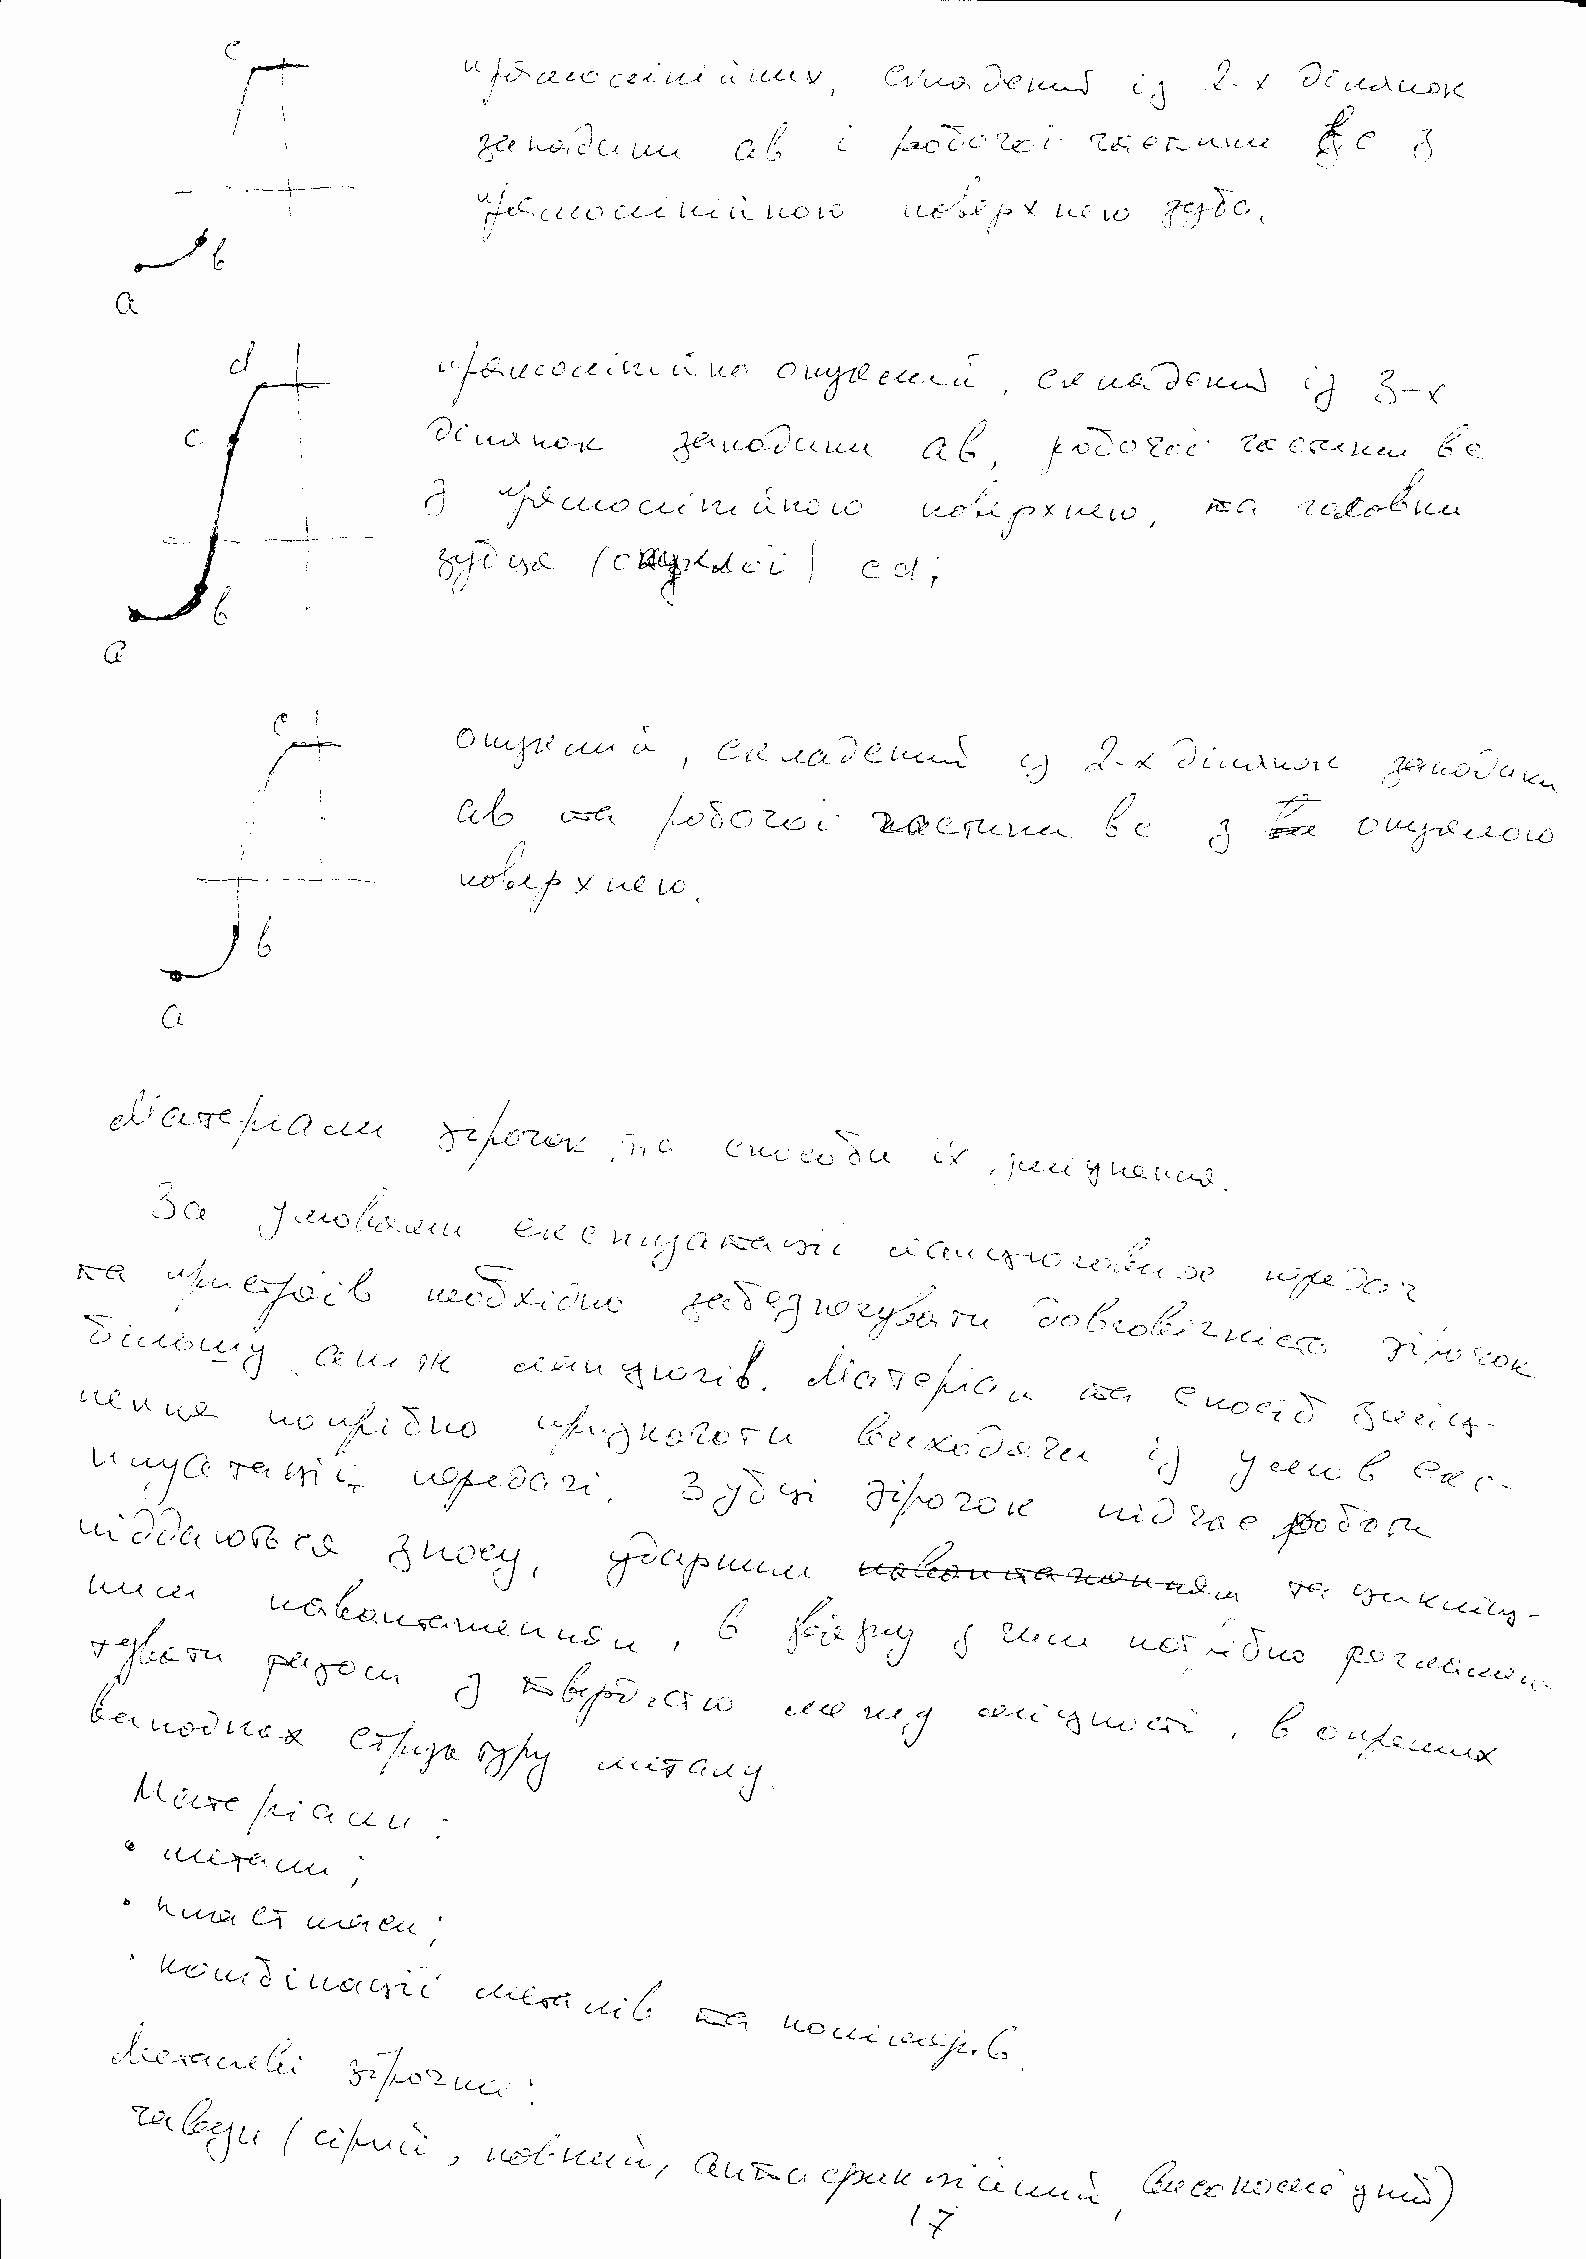 c
прямолінійних, складений із 2-х ділянок
западини ав і робочої частини вс з
прямолінійною поверхнею зуба.
в
а
d
прямолінійно опуклий, складений із 3-х
c
ділянок западини ав, робочої частини вс
з прямолінійною поверхнею, та головки
зубця (опуклої) cd;
в
а
c
опуклий, складений із 2-х ділянок западини
ав та робочої частини вс з опуклою
поверхнею.
в
а
Матеріали зірочок та способи їх зміцнення.
За умовами експлуатації ланцюгових передач
та пристроїв необхідно забезпечувати довговічність зірочок
більшу аніж ланцюгів. Матеріал та спосіб зміц-
нення потрібно призначати виходячи із умов екс-
плуатації передачі. Зубці зірочок під час роботи
піддаються зносу, ударним навантаженням та циклід-
ним навантаженням, в зв'язку з чим потрібно розгляда-
твердістю межу міцності, в окремих
випадках структуру металу.
Матеріали:
• метали;
• пластмаси;
• комбінації металів та полімерів.
Металеві зірочки:
чавун (сірий, ковкий, антифрикційний, високоміцний)
17